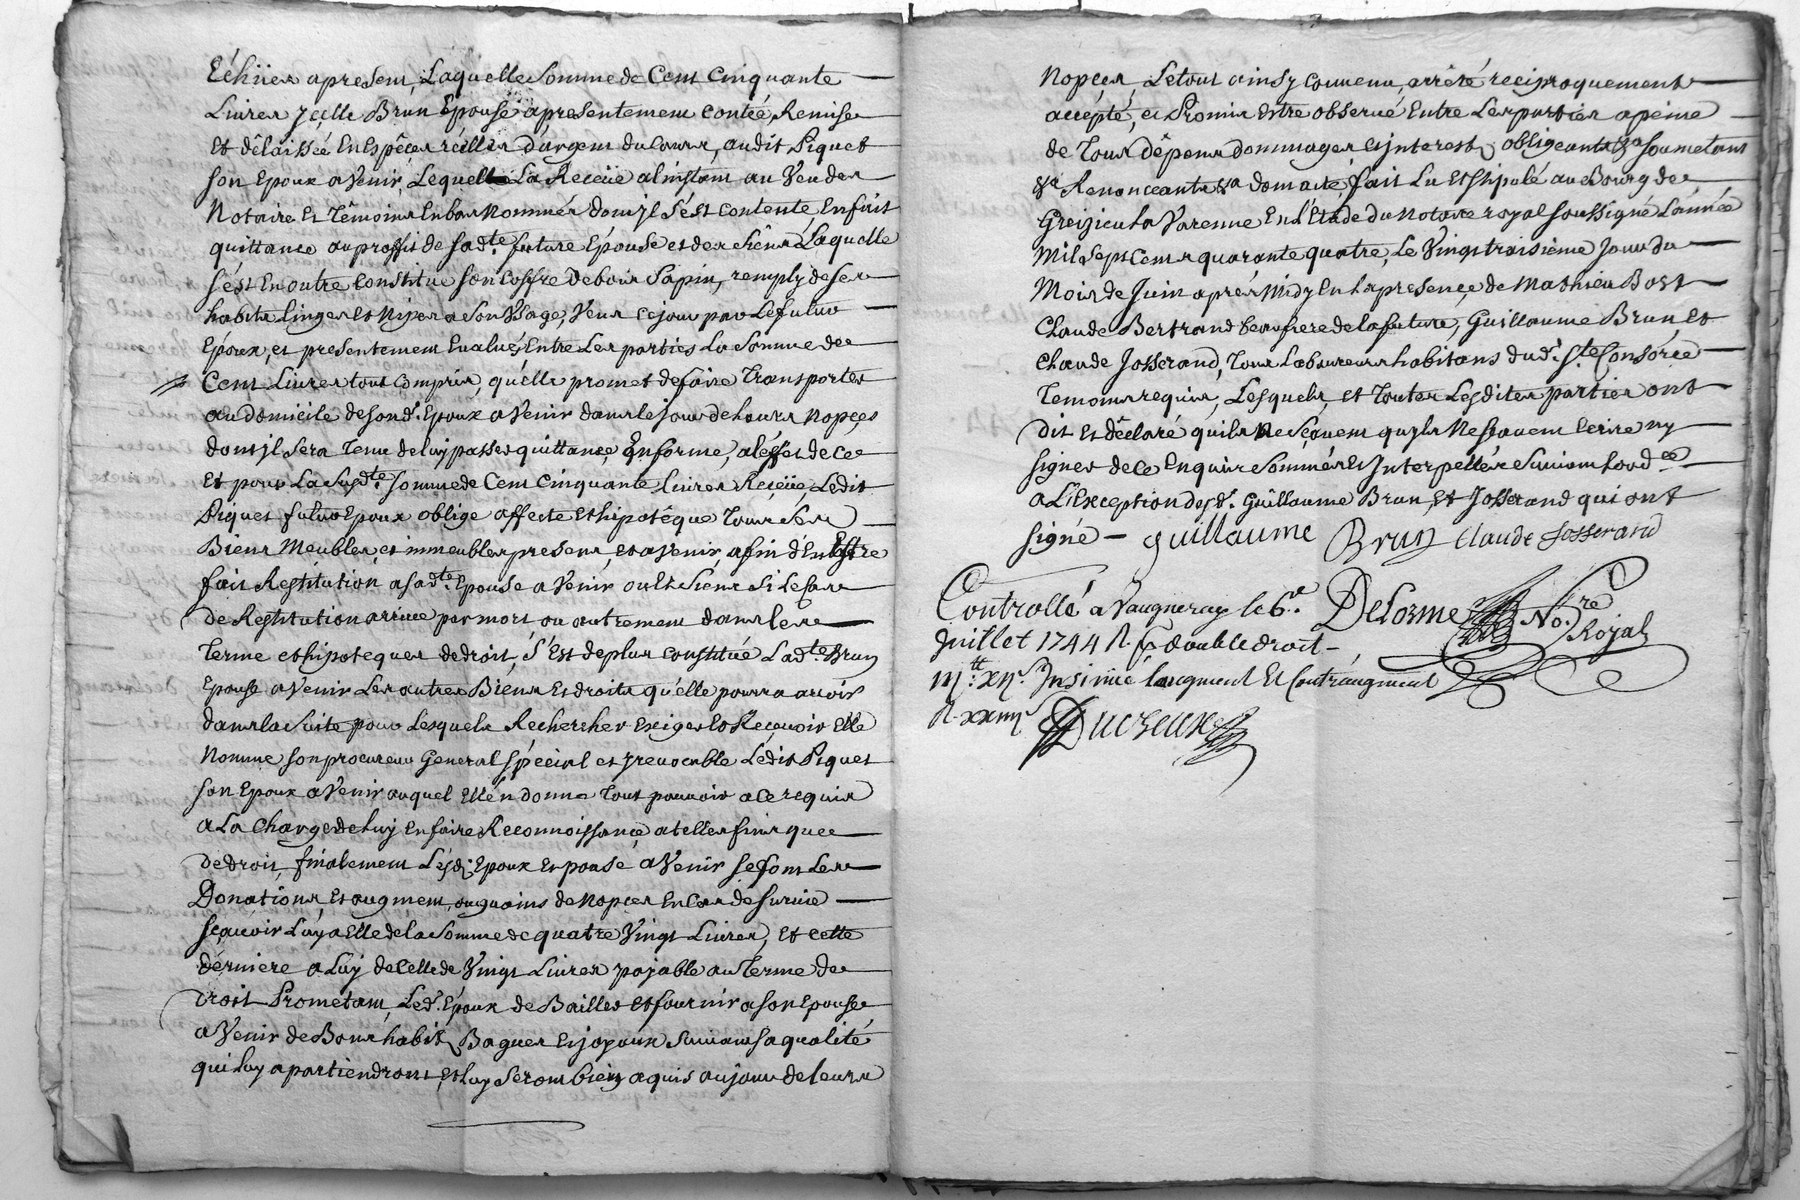 Echüer apresent, Laquelle Somme de Cent Cinquante
Livres ycelle Brun Epouse a presentement contée Remise
et délaissée En Espéces réélles d'argent du cours, audit Piquet
son Epoux a Venir, Lequel La Receüe a l'instant au Veu des
Notaire et Témoins En bas Nommés dont jl s'ést Contenté, En fait
quittance au proffit de sad.te future Epouse et des siens Laquelle
s'ést En outre Constitué son Coffre de bois Sapin, remply de ses
habits Linges et Nipes a son Usage, Veus ce jour par Le futur
Epoux, et presentement Evalués Entre Les parties La Somme de
Cent Livres tout Compris, qu'elle promet de faire Transporter
au domicile de sond. Epoux a Venir dans le jour de Leurs Nopçes
dont jl sera Tenu de luy passer quittançe En forme, a l'éffet de Ce
et pour La susd.te Somme de Cent Cinquante Livres Reçeüe, Ledit
Piquet futur Epoux oblige affecte et hipotéque Tous ses
Biens Meubles, et immeubles presens, et a venir, afin d'En Estre
fait Restitution, a sad.te Epouse a Venir ou Es Siens Si Le Cas
de Restitution arrive par mort ou autrement dans les
Terme et hipoteques de droit, S'Est de plus constitué Lad.te Brun
Epouse a Venir Les autres Biens et droits qu'elle pourra avoir
dans la suite pour Lesquels Rechercher Exiger et Reçevoir Elle
Nomme son procureur General spécial et jrevocable Lédit Piquet
son Epoux a Venir auquel Elle n donne Tout pouvoir a ce requis
a La Charge de Luy En faire Reconnoissançe a telles fins que
de droit, finalement Lésd. Epoux et Epouse a Venir se font Les
Donations, et augment, ou gains de Nopces En Cas de survie
sçavoir Luy a Elle de la Somme de quatre Vingt Livres, et cette
dérniere a Luy de Celle de Vingt Livres payable au Terme de
droit Prometant, Led. Epoux de Bailler et fournir a son Epouse
a Venir de Bons habits Bagues et joyaux Suivant sa qualité
qui Luy apartiendront, et luy seront bien aquis au jour de leurs
Nopçes, Le tout ainsy Convenu, arrété reciproquement
accépté, et Promis Estre observé Entre Les parties a peine
de Tous dépens dommages et jnterests obligeants &a soumetans
&a Renonceants &a dont acte, fait Lu et stipulé au Bourg de
Greizieu la Varenne En l'Etude du Notaire royal soussigné L'année
Mil Sept Cents quarante quatre, Le Vingt troisième Jour du
Mois de Juin aprés Midy En La presençe de Mathieu Bost
Claude Bertrand beaufrere de la future, Guillaume Brun Et
Claude Josserand, Tous Laboureurs habitans dud. S.te Consorce
Temoins requis, Lesquels, et Toutes Lesdites parties ont
dit et déclaré qu'ils Ne Sçavent qu'ils Ne sçavent Ecrire ny
signer de ce Enquis Sommés et Jnterpellés Suivant L'ord.ce
a L'Exception desd. Guillaume Brun, et Josserand qui ont
signé — guillaume Brun Claude Josserand
Controllé a Vaugneray le 6.e Delorme No.re Royal
Juillet 1744 R. double droit
Insinüé L'augment Et Contraugment
Ducreux